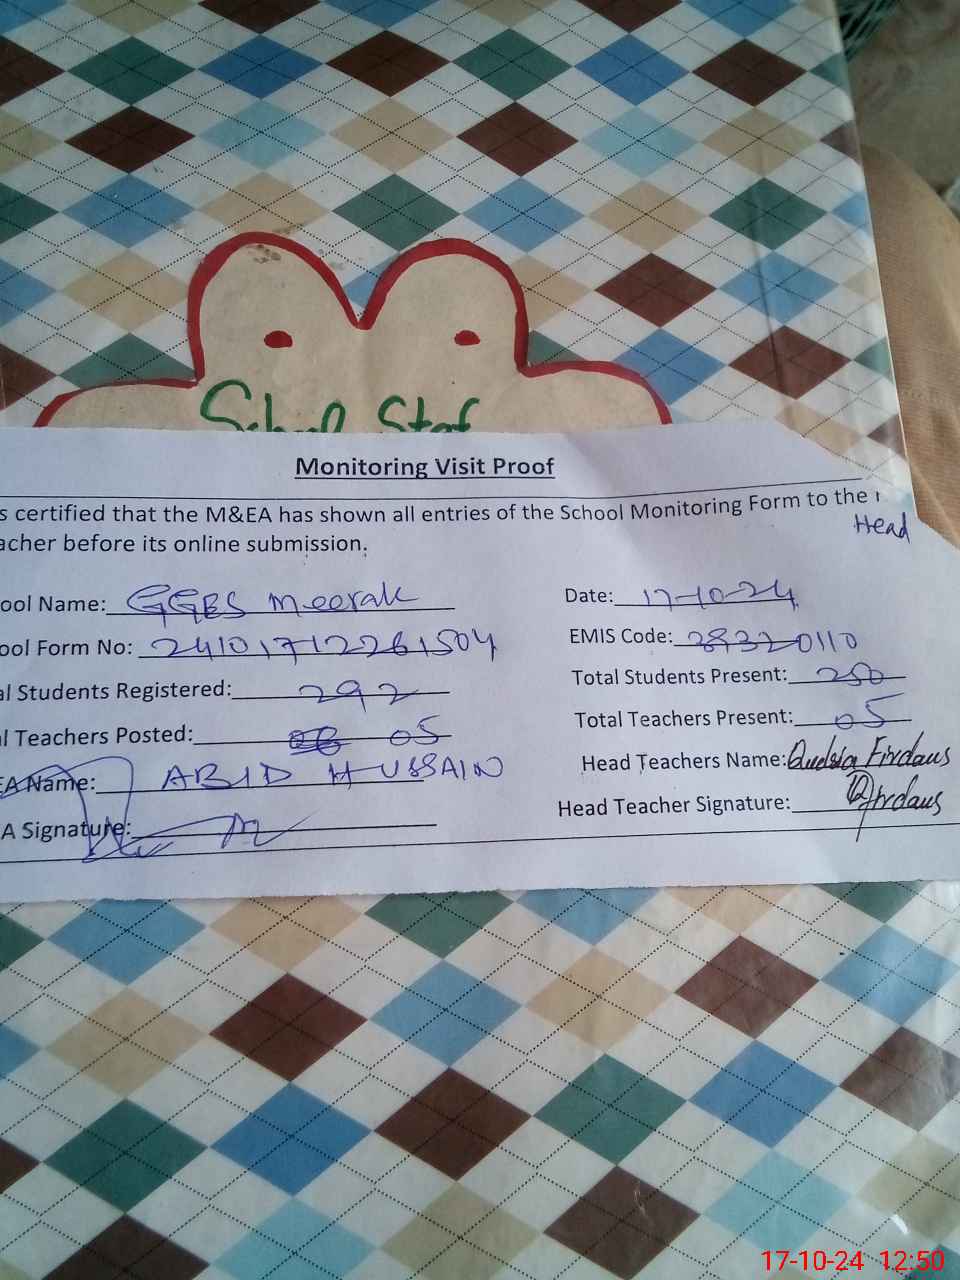 School Staf
Monitoring Visit Proof
s certified that the M&EA has shown all entries of the School Monitoring Form to the
Head
acher before its online submission.
ool Name: GGES Meerak Date: 17-10-24
ool Form No: 24101712261504 EMIS Code: 38320110
al Students Registered: 292 Total Students Present: 250
l Teachers Posted: 05 Total Teachers Present: 05
EA Name: ABID HUSSAIN Head Teachers Name: Qudsia Firdaus
A Signature: Head Teacher Signature: Firdaus
17-10-24 12:50